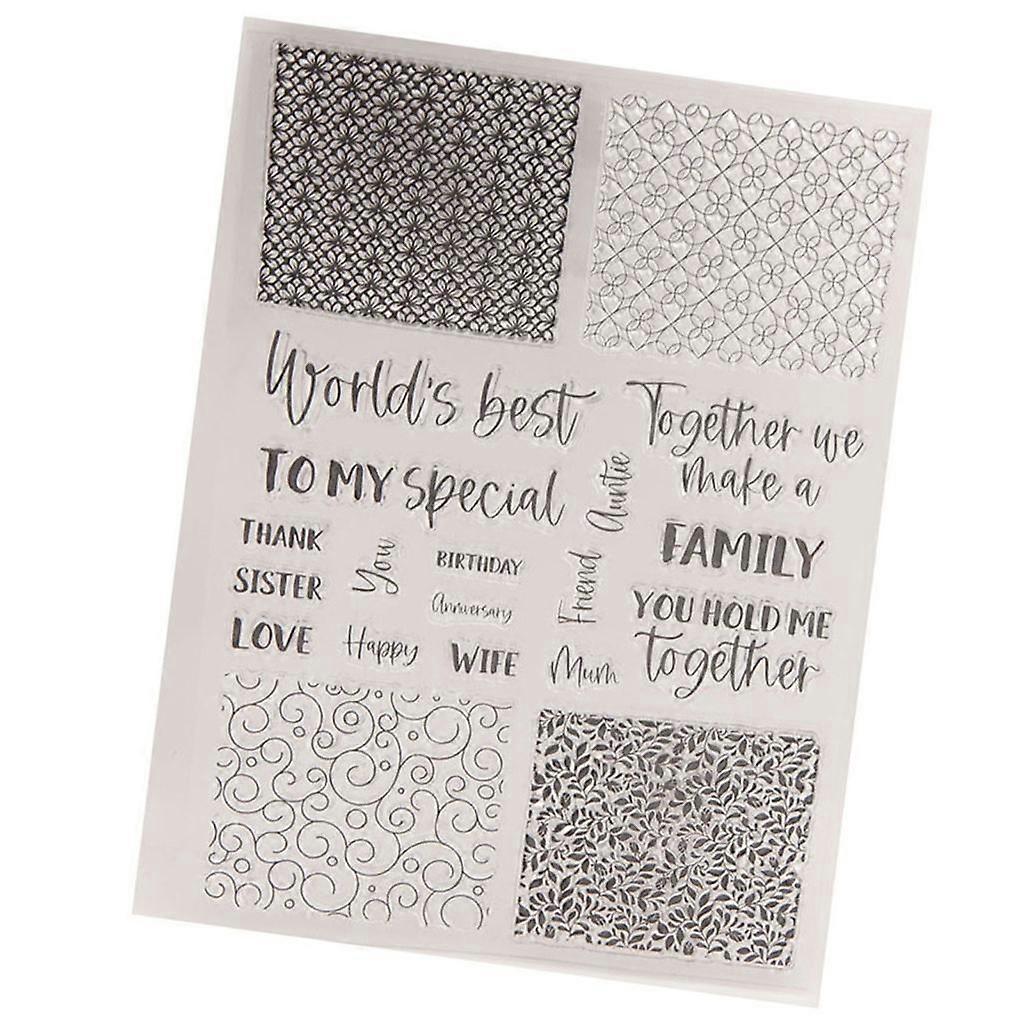 World's best
TO MY special
THANK
SISTER
LOVE
You
Happy
BIRTHDAY
Anniversary
WIFE
Auntie
Friend
Mum
Together we
make a
FAMILY
YOU HOLD ME
together